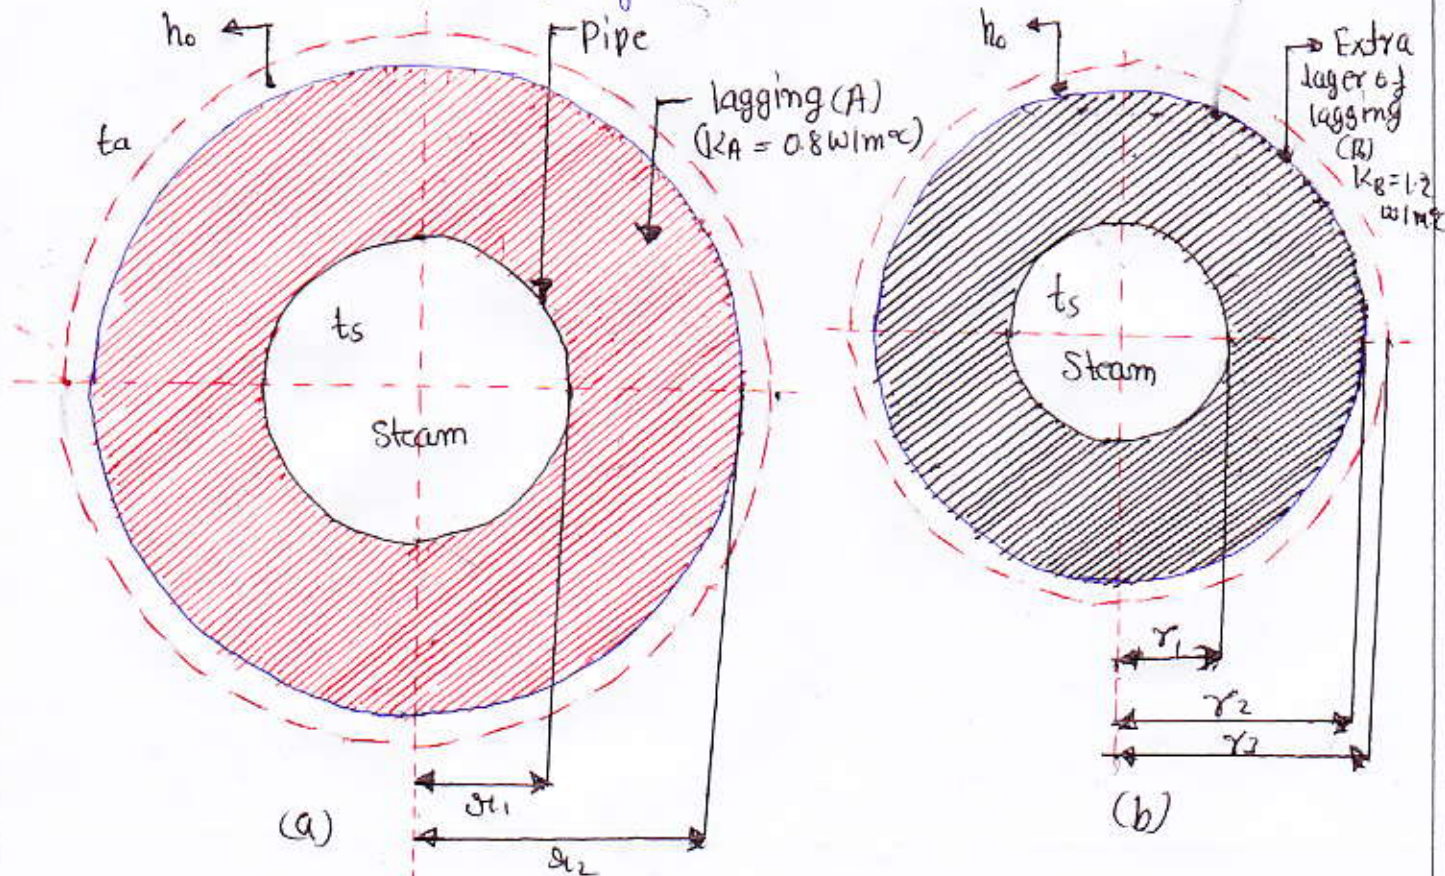 ho
Pipe
lagging (A)
(KA = 0.8 W/m°C)
ta
ts
Steam
r1
r2
(a)
ho
Extra
lager of
lagging
(B)
KB = 1.2
W/m°C
ts
Steam
r1
r2
r3
(b)